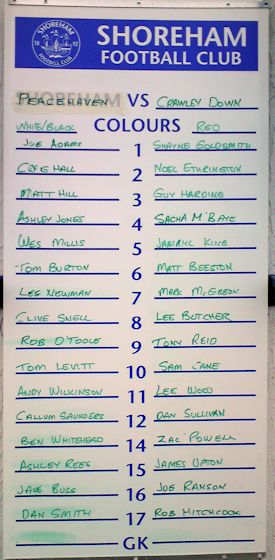 SHOREHAM
1892
FOOTBALL CLUB
SHOREHAM
FOOTBALL CLUB
PEACEHAVEN VS CRAWLEY DOWN
WHITE/BLACK COLOURS RED
JOE ADAMS 1 SHAYNE GOLDSMITH
CRAIG HALL 2 NOEL ETHRINGTON
MATT HILL 3 GUY HARDING
ASHLEY JONES 4 SACHA M'BAYE
WES MILLIS 5 JAMAHL KING
TOM BURTON 6 MATT BEESTON
LEE NEWMAN 7 MARK McGIBBON
CLIVE SNELL 8 LEE BUTCHER
ROB O'TOOLE 9 TONY REID
TOM LEVITT 10 SAM CANE
ANDY WILKINSON 11 LEE WOOD
CALLUM SAUNDERS 12 DAN SULLIVAN
BEN WHITEHEAD 14 ZAC POWELL
ASHLEY REES 15 JAMES UPTON
JAKE BUSS 16 JOE RANSON
DAN SMITH 17 ROB HITCHCOCK
GK